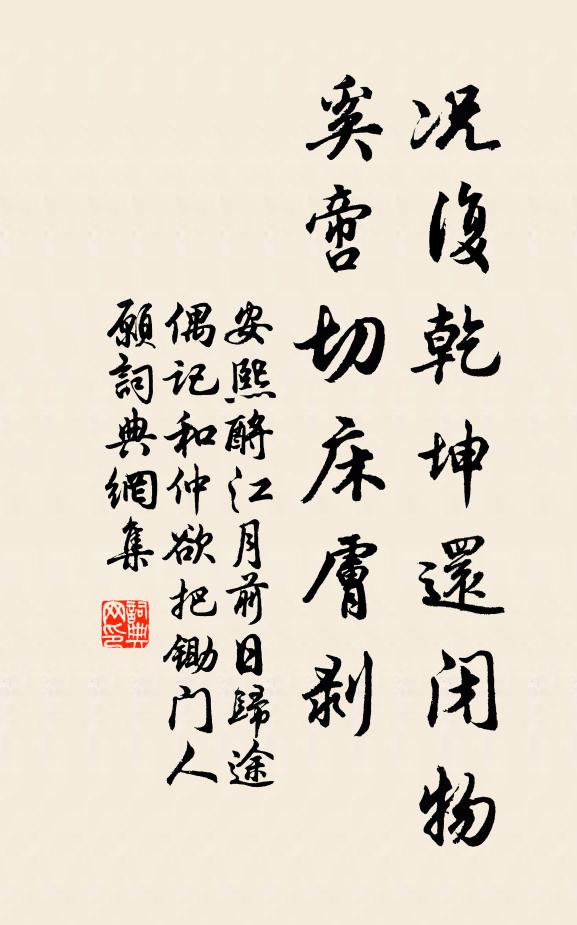 况復乾坤還闭物
奚啻切床膚剥
安熙酹江月前日歸途
偶记和仲欲把锄门人
願詞典網集
詞典
网印